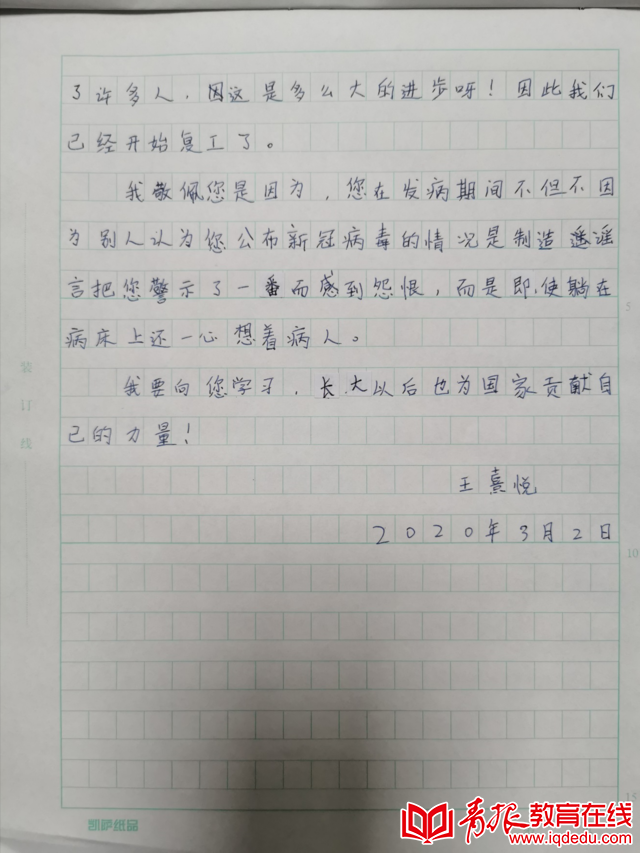 了许多人，因这是多么大的进步呀！因此我们
已经开始复工了。
我敬佩您是因为，您在发病期间不但不因
为别人认为您公布新冠病毒的情况是制造遥谣
言把您警示了一番而感到怨恨，而是即使躺在
病床上还一心想着病人。
我要向您学习，长大以后也为国家贡献自
己的力量！
王熹悦
2020年3月2日
装
订
线
5
10
15
凯萨纸品
青报教育在线
www.iqdedu.com